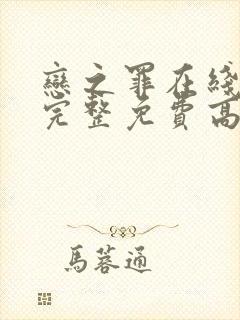 戀之罪在綫
完整免費高
馬蓉通